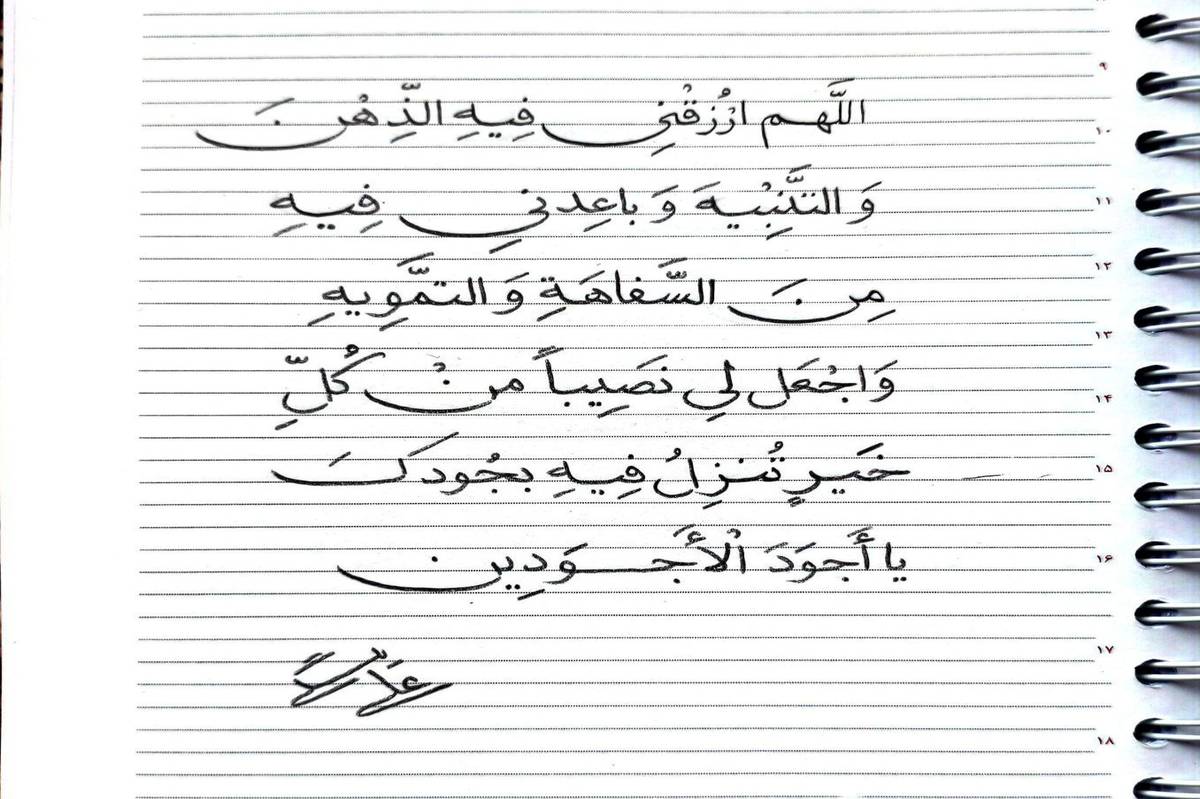 ۹
اللَّهم ارْزُقْنِي فِيهِ الذِّهْنَ
۱۰
وَ التَّنْبِيهَ وَ باعِدنِي فِيهِ
۱۱
مِنَ السَّفاهَةِ وَ التَّمْوِيهِ
۱۲
۱۳
وَ اجْعَل لِي نَصِيباً مِنْ كُلِّ
۱۴
خَيرٍ تُنزِلُ فِيهِ بجُودكَ
۱۵
يا أَجوَدَ الْأَجوَدِين
۱۶
۱۷
۱۸